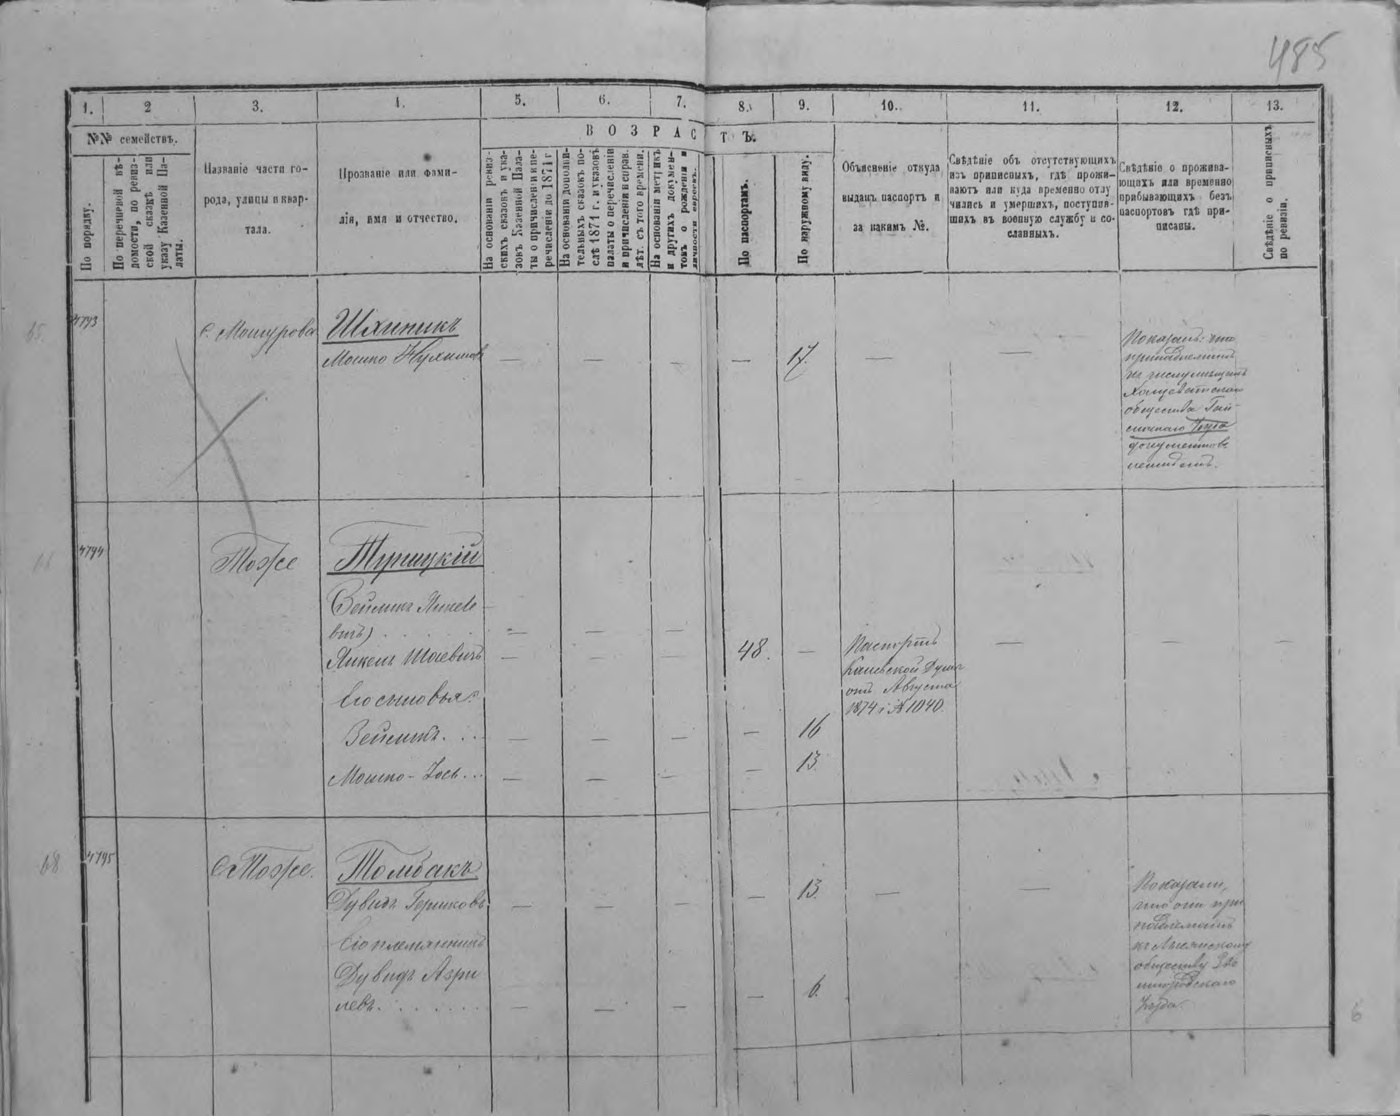 485
1.
2
3.
4.
5.
6.
7.
8.
9.
10.
11.
12.
13.
№№ семействъ.
По порядку.
По перечневой вѣ-
домости, по ревиз-
ской сказкѣ или
указу Казенной Па-
латы.
Названіе части го-
рода, улицы и квар-
тала.
Прозваніе или фами-
лія, имя и отчество.
ВОЗРАСТЪ.
На основаніи ревиз-
скихъ сказокъ и ука-
зовъ Казенной Пала-
ты о причисленіи и пе-
речисленіи до 1871 г.
На основаніи дополни-
тельныхъ сказокъ по-
слѣ 1871 г. и указовъ
палаты о перечисленіи
и причисленіи и справ.
лѣт. съ того времени.
На основаніи метрикъ
и другихъ докумен-
товъ о рожденіи и
личности евреевъ.
По паспортамъ.
По наружному виду.
Объясненіе откуда
выданъ паспортъ и
за какимъ №.
Свѣдѣніе объ отсутствующихъ
изъ приписныхъ, гдѣ прожи-
ваютъ или куда временно отлу
чились и умершихъ, поступив-
шихъ въ военную службу и со-
сланныхъ.
Свѣдѣніе о прожива-
ющихъ или временно
прибывающихъ безъ
паспортовъ гдѣ при-
писаны.
Свѣдѣніе о приписныхъ
по ревизіи.
65
4793
с. Мошурова
Шляпникъ
Мошко Нухимов
— — — — 17. — —
Показалъ: что
принадлежитъ
къ числу мѣщанъ
Хащеватскаго
общества Гай-
синскаго Уезда
документовъ
неимѣетъ.
66
4794
Тоже
Турицкій
Зейликъ Янкеле
вичъ) . . . .
— — —
Янкель Шаевичъ
— — — 48. — — — —
Паспортъ
Каневской Думы
отъ Августа
1874 г № 1040
Его сыновья:
Зейликъ. . . — — — — 16
Мошко-Іось. . . — — — — 13
68
4795
Тоже.
Толмбакъ
Дувидъ Гершковъ — — — — 13. — —
Его племянникъ
Дувидъ Азри
левъ. . . . . . — — — — 6.
Показали,
что они при
надлежатъ
къ
обществу Зве
нигородскаго
Уезда.
6